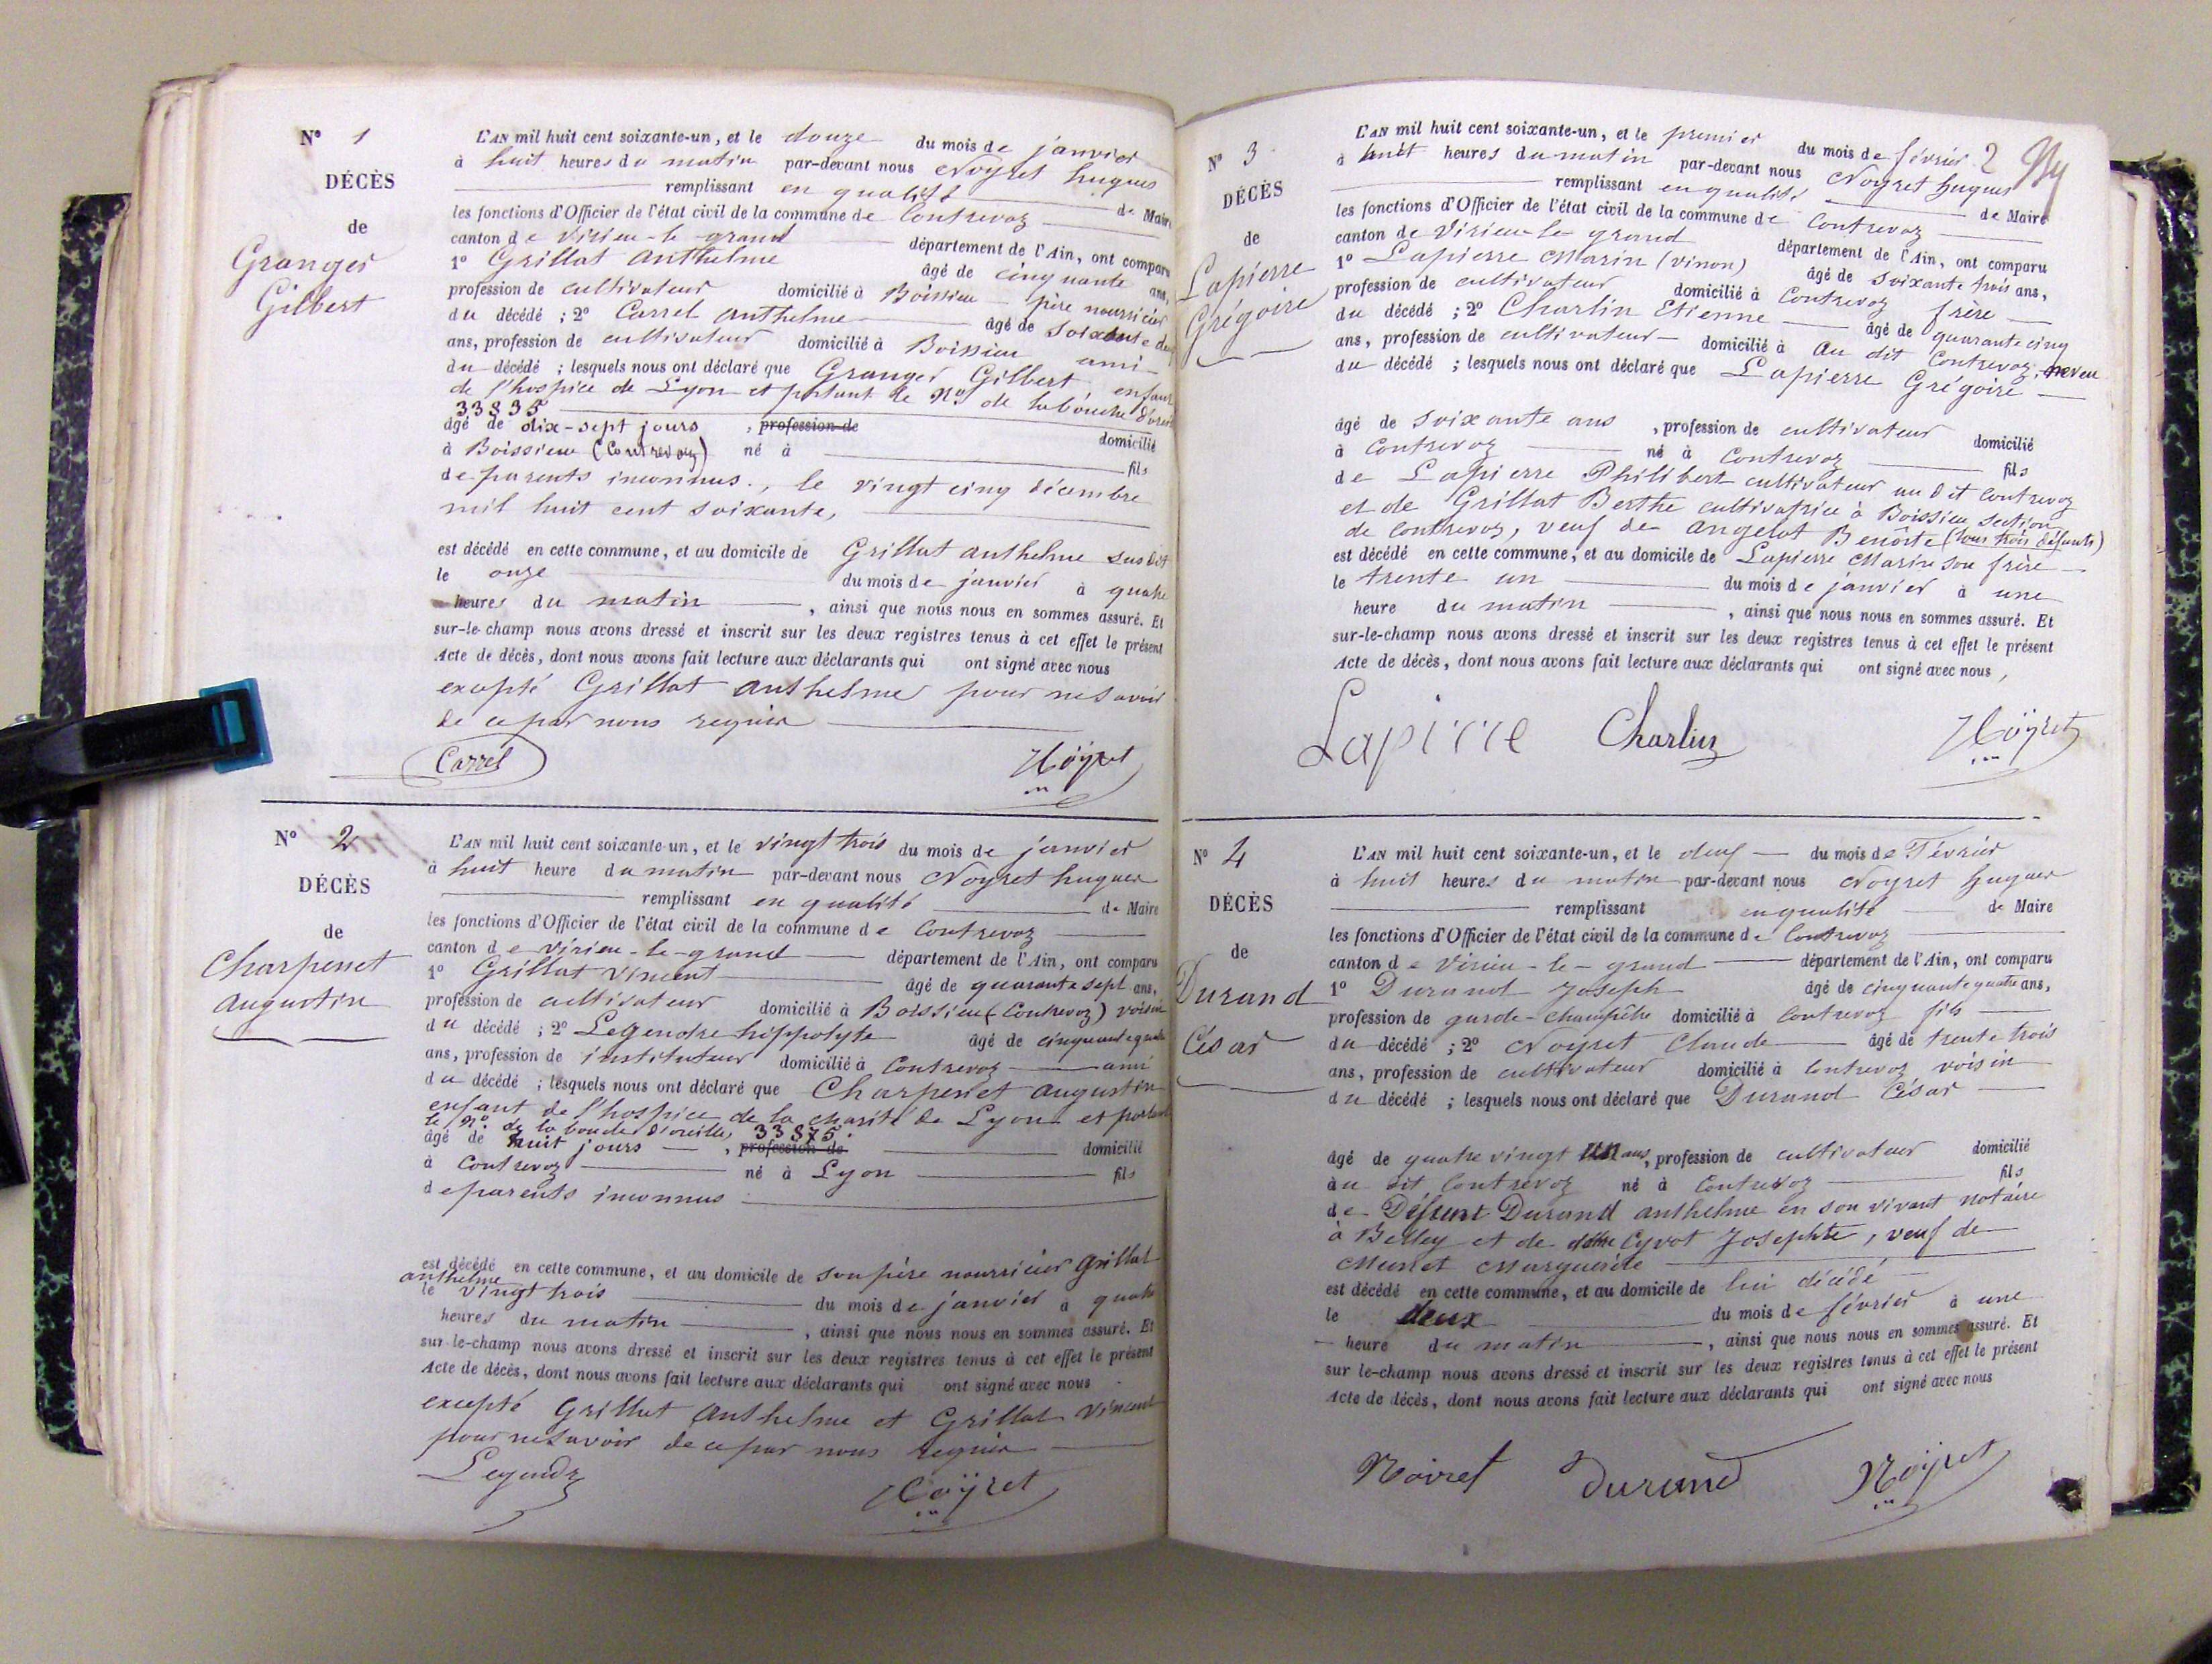 N° 1
DÉCÈS
de
Granger
Gilbert
L'AN mil huit cent soixante-un, et le douze du mois de janvier
à huit heures du matin par-devant nous Noyret hugues
remplissant en qualité de Maire
les fonctions d'Officier de l'état civil de la commune de Contrevoz
canton de Virieu-le-grand département de l'Ain, ont comparu
1° Grillat Anthelme âgé de cinquante ans,
profession de cultivateur domicilié à Boissieu père nourricier
du décédé ; 2° Carrel Anthelme âgé de soixante deux
ans, profession de cultivateur domicilié à Boissieu ami
du décédé ; lesquels nous ont déclaré que Granger Gilbert enfant
de l'hospice de Lyon et portant le N° de la boucle d'oreille
33835
âgé de dix-sept jours , profession de domicilié
à Boissieu (Contrevoz) né à fils
de parents inconnus., le vingt cinq décembre
mil huit cent soixante,
est décédé en cette commune, et au domicile de Grillat anthelme susdit
le onze du mois de janvier à quatre
heures du matin , ainsi que nous nous en sommes assuré. Et
sur-le-champ nous avons dressé et inscrit sur les deux registres tenus à cet effet le présent
Acte de décès, dont nous avons fait lecture aux déclarants qui ont signé avec nous
excepté Grillat Anthelme pour ne savoir
de ce par nous requis
Carrel Noÿret
N° 2
DÉCÈS
de
Charpenet
Augustin
L'AN mil huit cent soixante-un, et le vingt trois du mois de janvier
à huit heure du matin par-devant nous Noyret hugues
remplissant en qualité de Maire
les fonctions d'Officier de l'état civil de la commune de Contrevoz
canton de Virieu-le-grand département de l'Ain, ont comparu
1° Grillat Vincent âgé de quarante sept ans,
profession de cultivateur domicilié à Boissieu (Contrevoz) voisin
du décédé ; 2° Legendre hippolyte âgé de cinquante quatre
ans, profession de instituteur domicilié à Contrevoz ami
du décédé ; lesquels nous ont déclaré que Charpenet Augustin
enfant de l'hospice de la charité de Lyon et portant
le N° de la boucle d'oreille, 33875.
âgé de huit jours , profession de domicilié
à Contrevoz né à Lyon fils
de parents inconnus
est décédé en cette commune, et au domicile de son père nourricier Grillat
anthelme
le vingt trois du mois de janvier à quatre
heures du matin , ainsi que nous nous en sommes assuré. Et
sur-le-champ nous avons dressé et inscrit sur les deux registres tenus à cet effet le présent
Acte de décès, dont nous avons fait lecture aux déclarants qui ont signé avec nous
excepté Grillat Anthelme et Grillat Vincent
pour ne savoir de ce par nous requis
Legendre Noÿret
2
N° 3
DÉCÈS
de
Lapierre
Grégoire
L'AN mil huit cent soixante-un, et le premier du mois de février
à huit heures du matin par-devant nous Noyret hugues
remplissant en qualité de Maire
les fonctions d'Officier de l'état civil de la commune de Contrevoz
canton de Virieu-le-grand département de l'Ain, ont comparu
1° Lapierre Marin (vinon) âgé de soixante trois ans,
profession de cultivateur domicilié à Contrevoz frère
du décédé ; 2° Charlin Etienne âgé de quarante cinq
ans, profession de cultivateur domicilié à au dit Contrevoz, neveu
du décédé ; lesquels nous ont déclaré que Lapierre Grégoire
âgé de soixante ans , profession de cultivateur domicilié
à Contrevoz né à Contrevoz fils
de Lapierre Philibert cultivateur au dit Contrevoz
et de Grillat Berthe cultivatrice à Boissieu section
de Contrevoz, veuf de Angelot Benoite (tous trois défunts)
est décédé en cette commune, et au domicile de Lapierre Marin son frère
le trente un du mois de janvier à une
heure du matin , ainsi que nous nous en sommes assuré. Et
sur-le-champ nous avons dressé et inscrit sur les deux registres tenus à cet effet le présent
Acte de décès, dont nous avons fait lecture aux déclarants qui ont signé avec nous,
Lapirre Charlin Noÿret
N° 4
DÉCÈS
de
Durand
César
L'AN mil huit cent soixante-un, et le deux du mois de Février
à huit heures du matin par-devant nous Noyret hugues
remplissant en qualité de Maire
les fonctions d'Officier de l'état civil de la commune de Contrevoz
canton de Virieu-le-grand département de l'Ain, ont comparu
1° Durand Joseph âgé de cinquante quatre ans,
profession de garde-champêtre domicilié à Contrevoz fils
du décédé ; 2° Noyret Claude âgé de trente trois
ans, profession de cultivateur domicilié à Contrevoz voisin
du décédé ; lesquels nous ont déclaré que Durand César
âgé de quatre vingt un ans, profession de cultivateur domicilié
à au dit Contrevoz né à Contrevoz fils
de Défunt Durand anthelme en son vivant notaire
à Belley et de Cyvot Josephte, veuf de
Munet Marguérite
est décédé en cette commune, et au domicile de lui décédé
le deux du mois de février à une
heure du matin , ainsi que nous nous en sommes assuré. Et
sur le-champ nous avons dressé et inscrit sur les deux registres tenus à cet effet le présent
Acte de décès, dont nous avons fait lecture aux déclarants qui ont signé avec nous
Noiret Durand Noÿret